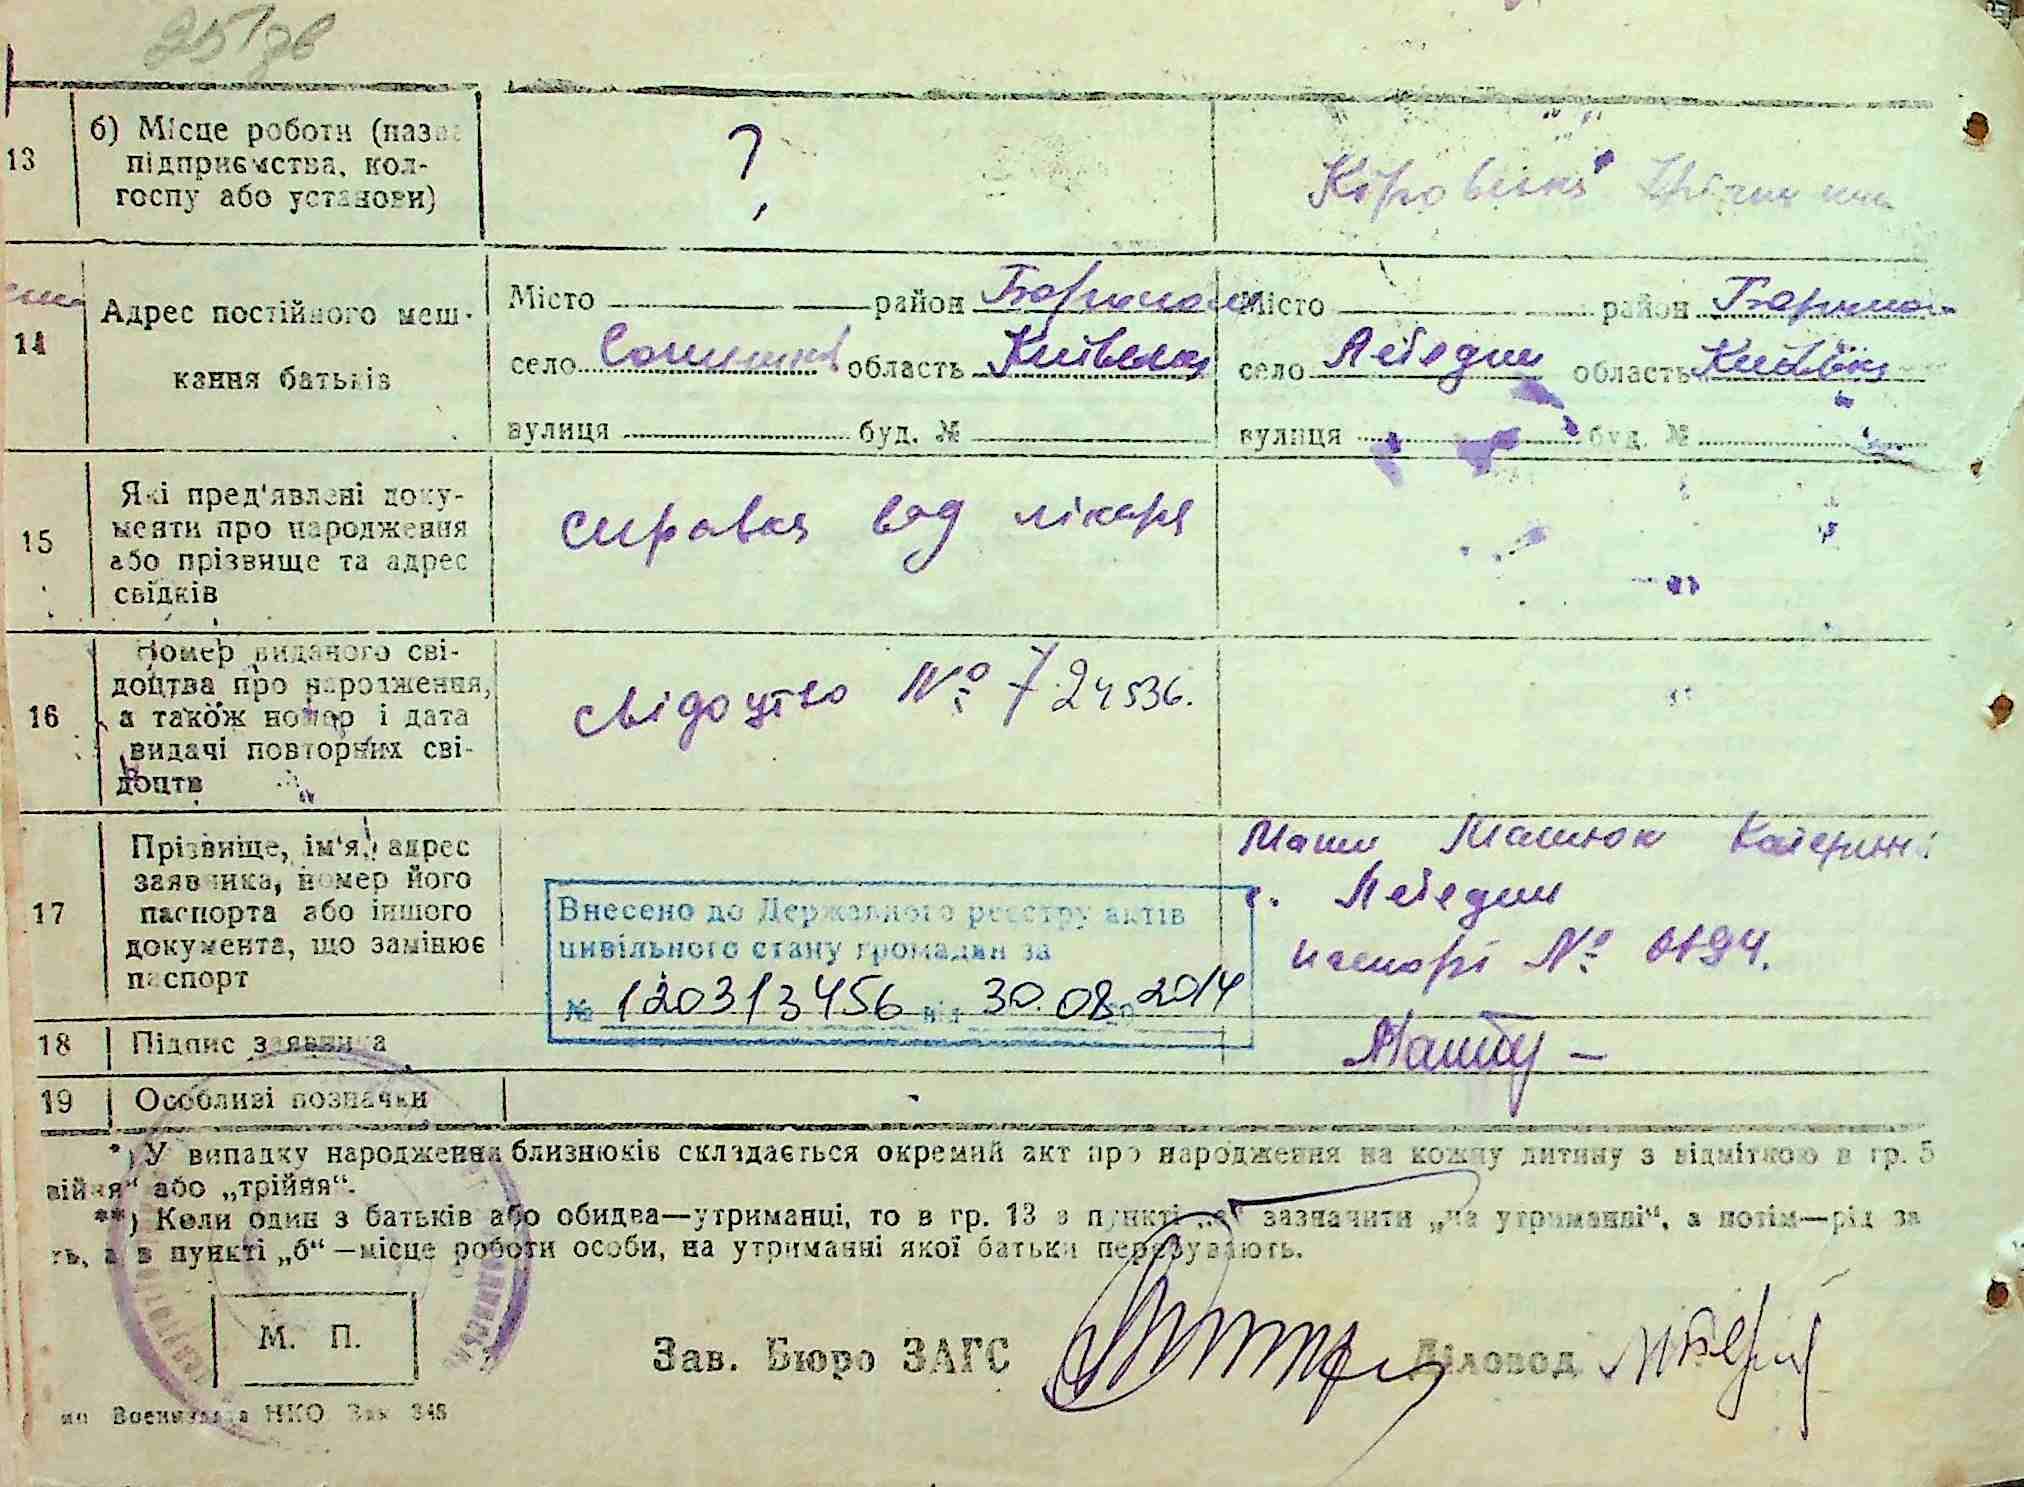 13
б) Місце роботи (назва
підприємства, кол-
госпу або установи)
?
14
Адрес постійного меш-
кання батьків
Місто район
село область Київська
вулиця буд. №
Місто район
село Лебедин область Київська
вулиця буд. №
15
Які пред'явлені доку-
менти про народження
або прізвище та адрес
свідків
справка від лікаря
16
Номер виданого сві-
доцтва про народження,
а також номер і дата
видачі повторних сві-
доцтв
свідоцтво № 724536.
17
Прізвище, ім'я, адрес
заявника, номер його
паспорта або іншого
документа, що замінює
паспорт
Внесено до Державного реєстру актів
цивільного стану громадян за
№ 120313456 від 30.08 2014
Мати Катерина
с. Лебедин
паспорт № 0194.
18
Підпис заявника
19
Особливі позначки
*) У випадку народження близнюків складається окремий акт про народження на кожну дитину з відміткою в гр. 5
війня“ або „трійня“.
**) Коли один з батьків або обидва—утриманці, то в гр. 13 в пункті „а“ зазначити „на утриманні“, а потім—рід за
ть, а в пункті „б“—місце роботи особи, на утриманні якої батьки перебувають.
М. П.
Зав. Бюро ЗАГС Діловод
Воениздата НКО Зак 348